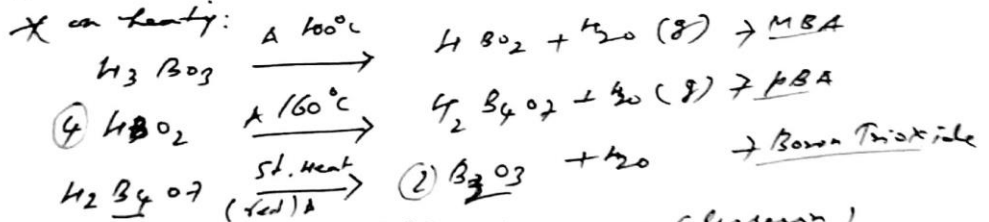 * on heating:
H3 BO3 Δ 100°C → H BO2 + H2O (g) → MBA
④ HBO2 Δ 160°C → H2 B4O7 + H2O (g) → pBA
H2 B4O7 St. Heat (red) Δ → ② B2O3 + H2O → Boron Trioxide